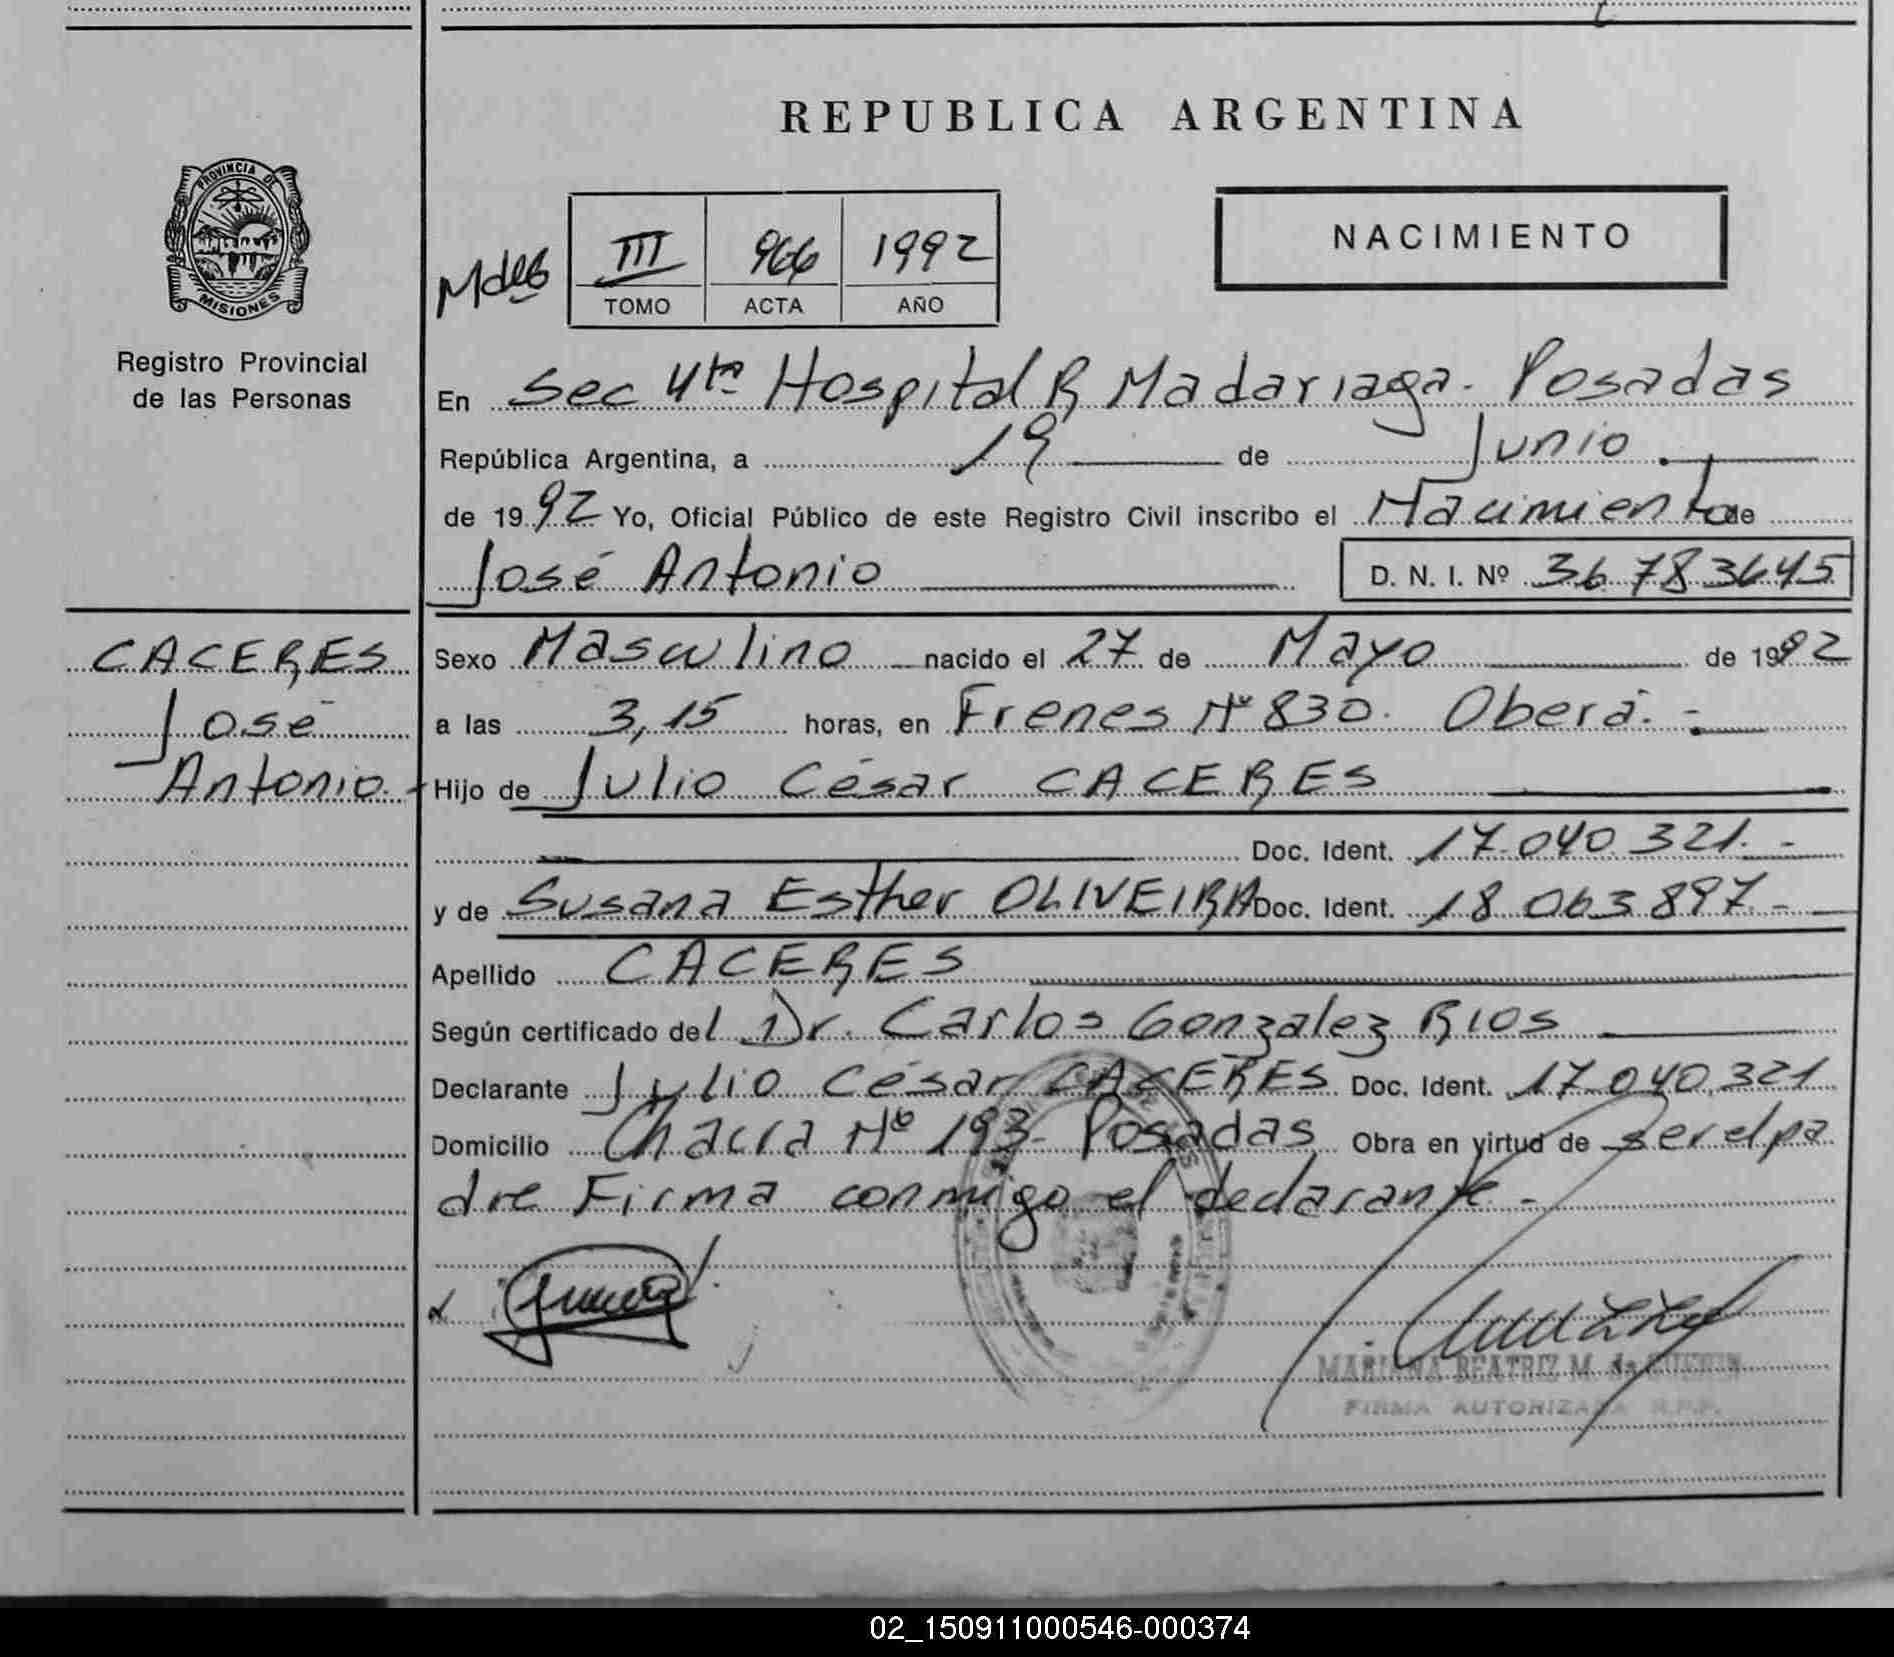 REPUBLICA ARGENTINA
PROVINCIA DE
MISIONES
Registro Provincial
de las Personas
NACIMIENTO
III 966 1992
TOMO ACTA AÑO
En Sec 4ta Hospital R Madariaga. Posadas
República Argentina, a 19 de Junio.
de 1992 Yo, Oficial Público de este Registro Civil inscribo el Nacimiento de
José Antonio D. N. I. Nº 36 783645
CACERES
José
Antonio.
Sexo Masculino nacido el 27 de Mayo de 1992
a las 3,15 horas, en Frenes Nº 830. Oberá. -
Hijo de Julio César CACERES
Doc. Ident. 17.040.321. -
y de Susana Esther OLIVEIRA Doc. Ident. 18 063.897. -
Apellido CACERES
Según certificado del Dr. Carlos Gonzalez Rios
Declarante Julio César CACERES Doc. Ident. 17.040.321
Domicilio Chacra Nº 193- Posadas Obra en virtud de ser el pa
dre Firma conmigo el declarante -
MARIANA BEATRIZ M. de
FIRMA AUTORIZADA R.P.P.
02_150911000546-000374